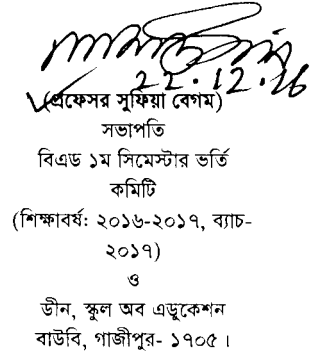 22.12.16
(প্রফেসর সুফিয়া বেগম)
সভাপতি
বিএড ১ম সিমেস্টার ভর্তি
কমিটি
(শিক্ষাবর্ষ: ২০১৬-২০১৭, ব্যাচ-
২০১৭)
ও
ডীন, স্কুল অব এডুকেশন
বাউবি, গাজীপুর- ১৭০৫।